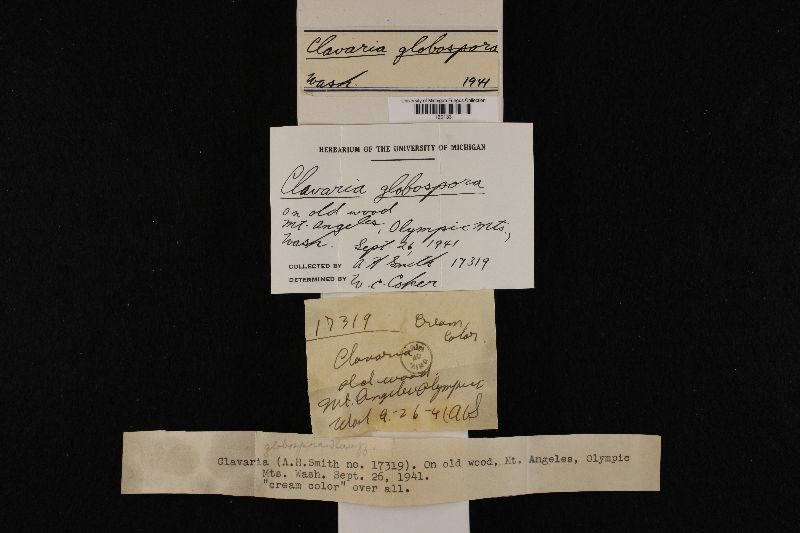 Clavaria globospora
Wash. 1941
University of Michigan Fungus Collection
HERBARIUM OF THE UNIVERSITY OF MICHIGAN
Clavaria globospora
on old wood
Mt. Angeles, Olympic Mts.,
Wash. Sept 26, 1941
COLLECTED BY A H Smith 17319
DETERMINED BY W. C. Coker
17319 Cream
Color.
Clavaria
old wood.
Mt. Angeles Olympic
Wash 9-26-41 AHS
globospora
Clavaria (A.H.Smith no. 17319). On old wood, Mt. Angeles, Olympic
Mts. Wash. Sept. 26, 1941.
"cream color" over all.